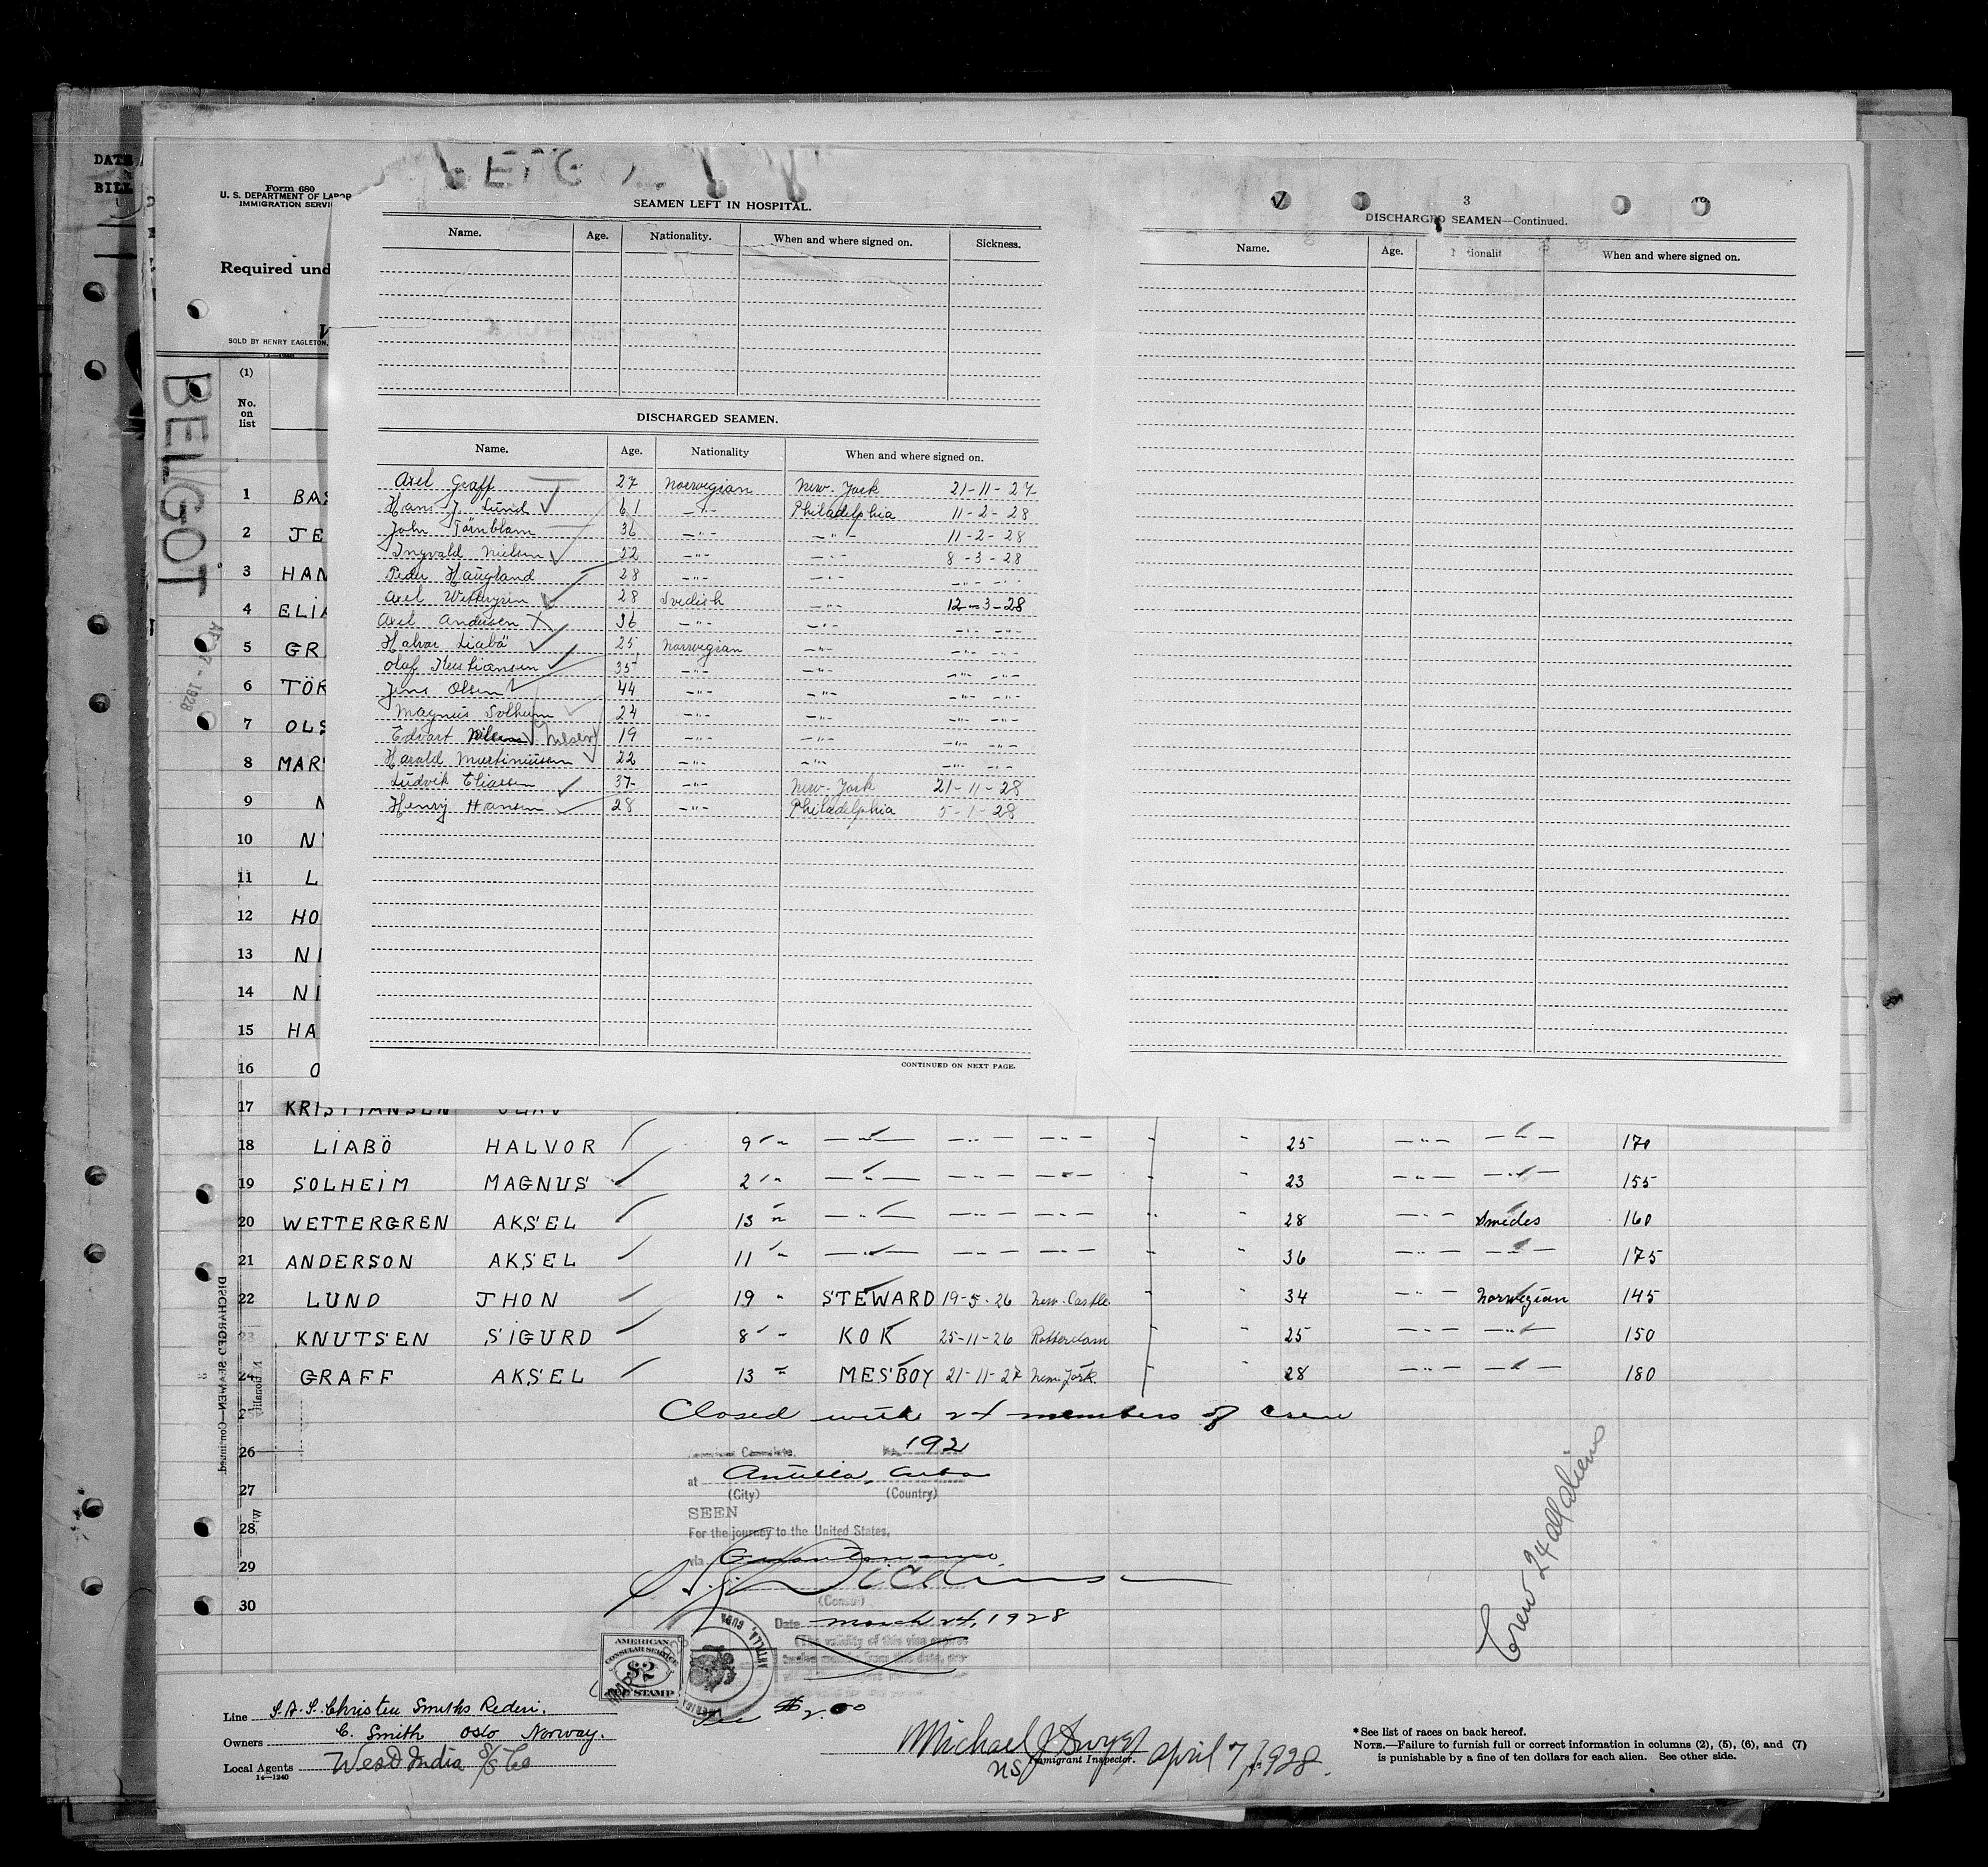 DATE
BILL
Form 680
U. S. DEPARTMENT OF LABOR
IMMIGRATION SERVI
Required und
SOLD BY HENRY EAGLETON,
BELGOT
APR 7 - 1928
(1)
No.
on
list
SEAMEN LEFT IN HOSPITAL.
Name. Age. Nationality. When and where signed on. Sickness.
DISCHARGED SEAMEN.
Name. Age. Nationality When and where signed on.
Axel Graff 27 Norwegian New-York 21-11-27
Hans J. Lund 61 -"- Philadelphia 11-2-28
John Törnblom 36 -"- -"- 11-2-28
Ingvald Nielsen 22 -"- -"- 8-3-28
Peder Haugland 28 -"- -"- -"- -"-
Axel Wettergren 28 Svedish -"- 12-3-28
Axel Andersen X 36 -"- -"- -"- -"-
Halvor Liabö 25 Norwegian -"- -"- -"-
Olaf Kristiansen 35 -"- -"- -"- -"-
Jens Olsen 44 -"- -"- -"- -"-
Magnus Solheim 24 -"- -"-
Edvart Nilsen 19 -"- -"- -"- -"-
Harald Martiniussen 22 -"- -"- -"- -"-
Ludvik Eliassen 37 -"- New-York 21-11-28
Henry Hansen 28 -"- Philadelphia 5-1-28
CONTINUED ON NEXT PAGE.
3
DISCHARGED SEAMEN—Continued.
Name. Age. Nationalit When and where signed on.
1 BAS
2 JE
3 HAN
4 ELIA
5 GR
6 TÖR
7 OLS
8 MAR
9 N
10 NI
11 L
12 HO
13 NI
14 NI
15 HA
16 O
17 KRISTIANSEN OLAV
18 LIABÖ HALVOR 9 " —"— —"— —"— " 25 —"— —"— 170
19 SOLHEIM MAGNUS 2 " —"— —"— —"— 23 —"— —"— 155
20 WETTERGREN AKSEL 13 " —"— " " 28 —"— Swedes 160
21 ANDERSON AKSEL 11 " —"— —"— —"— " 36 —"— —"— 175
22 LUND JHON 19 " STEWARD 19-5-26 New-Castle " " 34 —"— Norwegian 145
23 KNUTSEN SIGURD 8 " KOK 25-11-26 Rotterdam " " 25 —"— —"— 150
24 GRAFF AKSEL 13 " MESBOY 21-11-27 New-York " " 28 —"— —"— 180
Closed with 24 members of crew
26
27
28
29
30
192
at Antilla, Cuba
(City) (Country)
SEEN
For the journey to the United States,
via Guantanamo
(Consul)
Date March 24, 1928
(The validity of this visa expires
twelve months from this date, pro-
AMERICAN
CONSULAR SERVICE
$2
FEE STAMP
ANTILLA, CUBA
AMERICA
Fee $2.00
DISCHARGED SEAMEN—Continued.
Crew 24 all aliens
Line S.A.S. Christen Smiths Rederi.
Owners C. Smith Oslo Norway.
Local Agents West India S/S Co
14—1240
Michael J. Dwyer April 7, 1928.
Immigrant Inspector.
*See list of races on back hereof.
NOTE.—Failure to furnish full or correct information in columns (2), (5), (6), and (7)
is punishable by a fine of ten dollars for each alien. See other side.